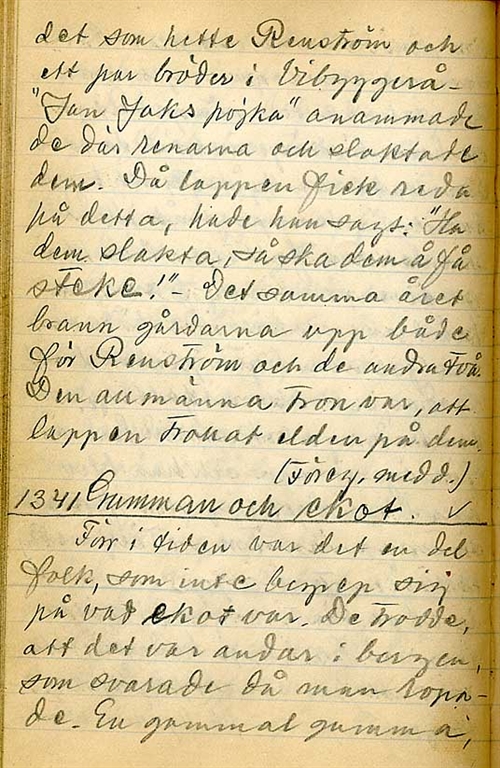 det som hette Renström och
ett par bröder i Vibyggerå -
"Jan Jaks pojka" anammade
de där renarna och slaktade
dem. Då lappen fick reda
på detta, hade han sagt: "Ha
dem slakta, så ska dem å få
steke!" - Det samma året
brann gårdarna upp både
för Renström och de andra två.
Den allmänna tron var, att
lappen trollat elden på dem.
(Föreg. medd.)
1341 Gumman och ekot. ✓
Förr i tiden var det en del
folk, som inte begrep sig
på vad ekot var. De trodde,
att det var andar i bergen,
som svarade då man ropa-
de. En gammal gumma,